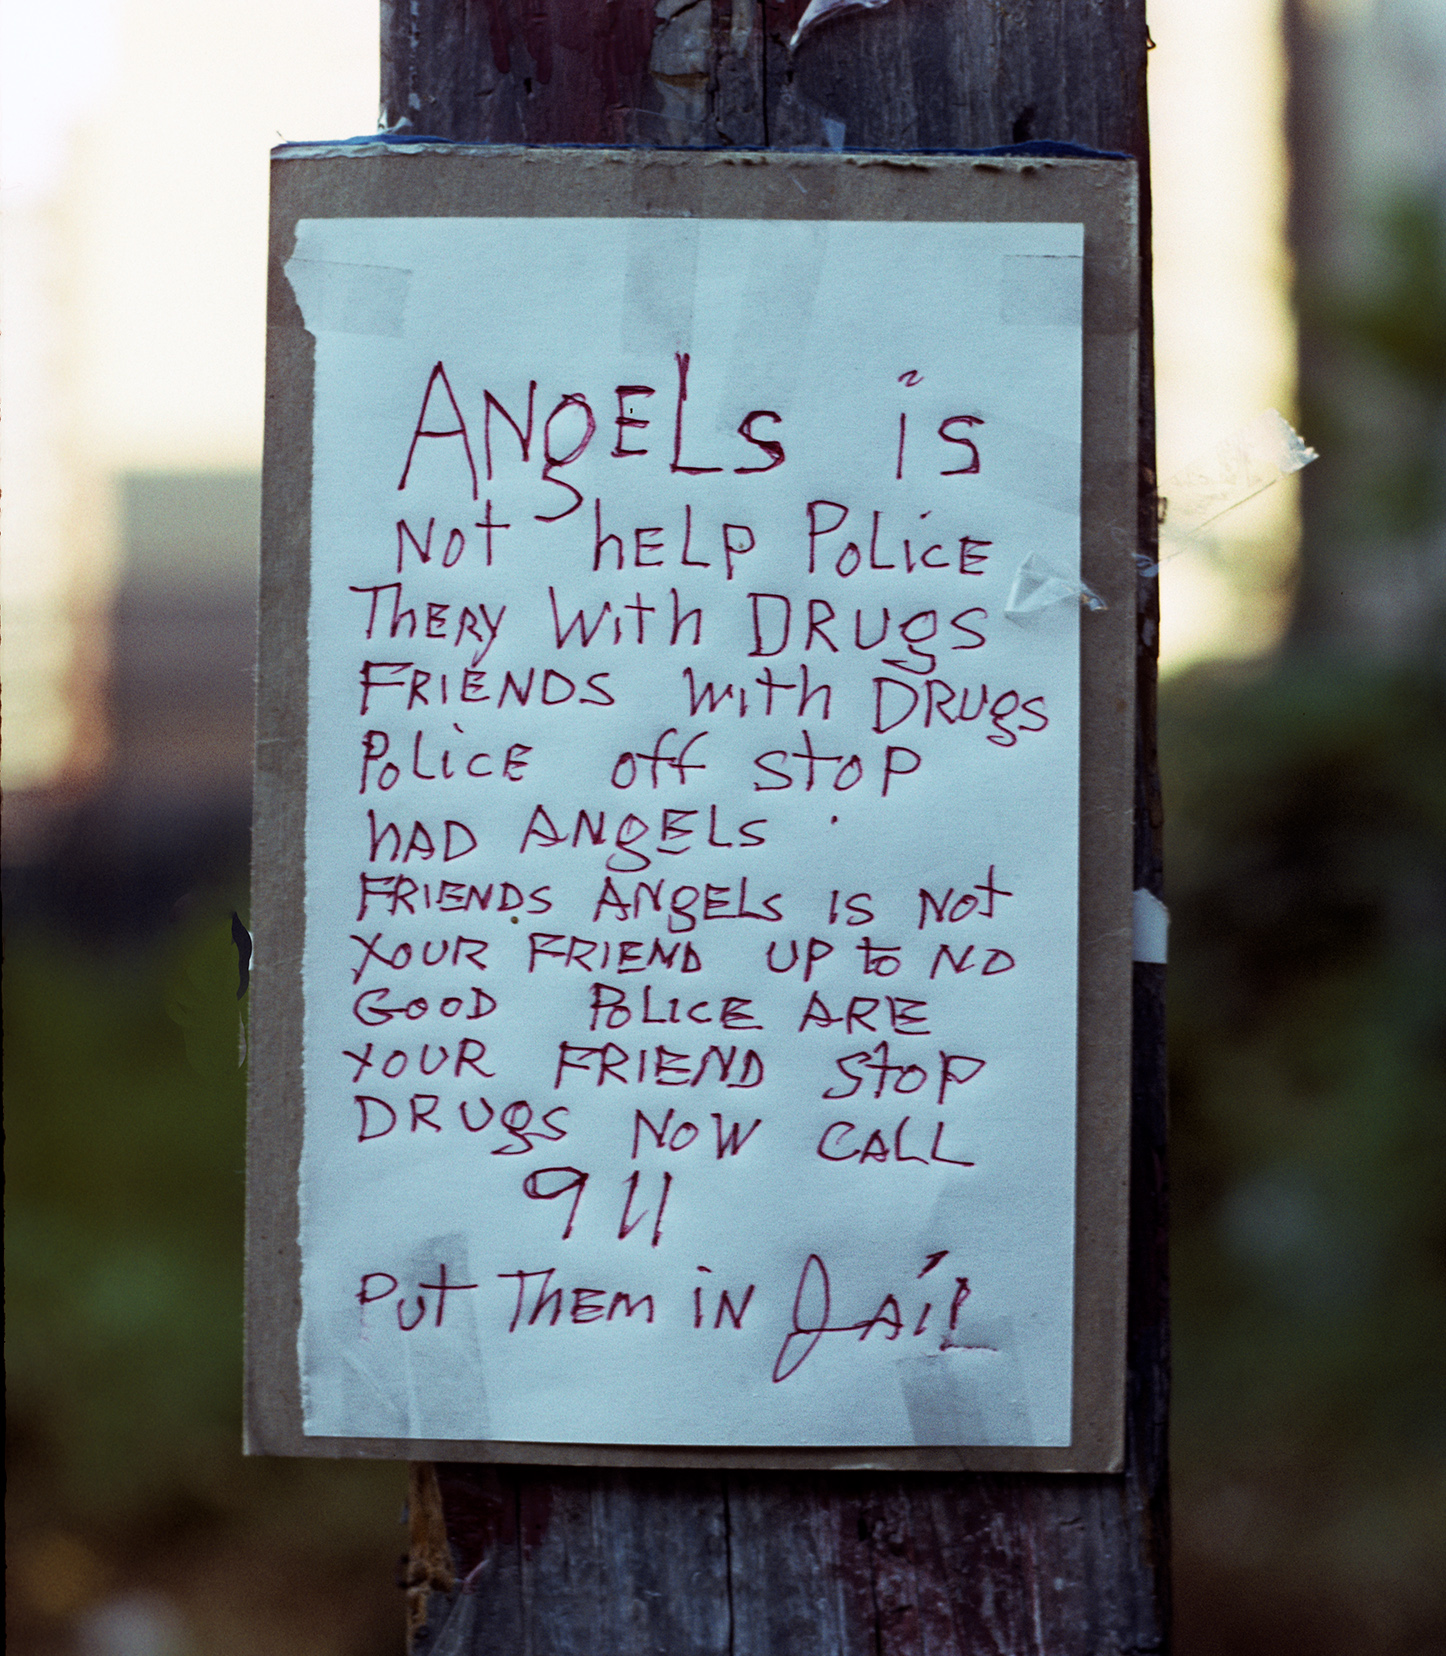 ANgELs is
Not hELP PoLicE
ThERy With DRUgS
FRIENDS with DRUgs
PoLicE off stoP
hAD ANgELs
FRIENDS ANgELs is Not
YOUR FRIEND UP to NO
GOOD POLICE ARE
YOUR FRIEND StoP
DRUgS NOW CALL
911
PUt ThEM iN JAiL